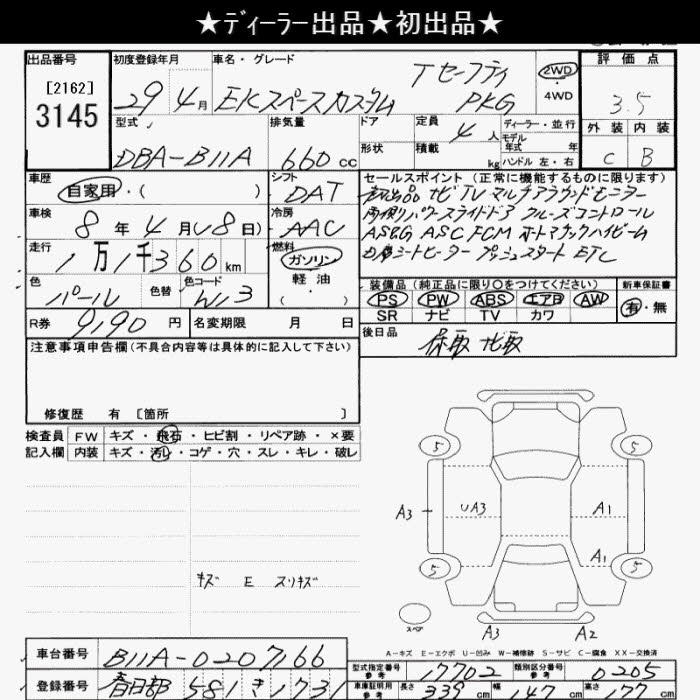 ★ディーラー出品★初出品★
出品番号
[2162]
3145
初度登録年月
29年4月
車名・グレード
Tセーフティ
EKスペースカスタム PKG
2WD
・
4WD
評価点
3.5
外装 内装
C B
型式
DBA-B11A
排気量
660cc
ドア
形状
定員
4人
積載
kg
ディーラー・並行
モデル
年式 年
ハンドル 左・右
車歴
自家用・( )
シフト
DAT
車検
8年4月(18日)
冷房
AAC
走行
1万1千360km
燃料
ガソリン
軽油
・
( )
色
パール
色替
色コード
W13
R券 9190円
名変期限 月 日
セールスポイント(正常に機能するものに限ります)
ナビ TV マルチアラウンドモニター
両側パワースライドドア クルーズコントロール
AS&G ASC FCM オートマチックハイビーム
シートヒーター プッシュスタート ETC
装備品(純正品に限り○をつけてください)
PS PW ABS エアB AW
SR ナビ TV カワ
新車保証書
有・無
後日品
保取 ナビ取
注意事項申告欄(不具合内容等は具体的に記入して下さい)
修復歴 有 [箇所 ]
検査員
記入欄
FW キズ・飛石・ヒビ割・リペア跡・×要
内装 キズ・汚レ・コゲ・穴・スレ・キレ・破レ
キズ E スリキズ
5
5
A3
UA3
A1
A1
5
5
スペア
A3
A2
A-キズ E-エクボ U-凹み W-補修跡 S-サビ C-腐食 XX-交換済
車台番号 B11A-0207166
登録番号 春日部 581 き 1731
型式指定番号
参考
17702
類別区分番号
参考
0205
車庫証明用
参考
長さ 339cm
幅 147cm
高さ 177cm